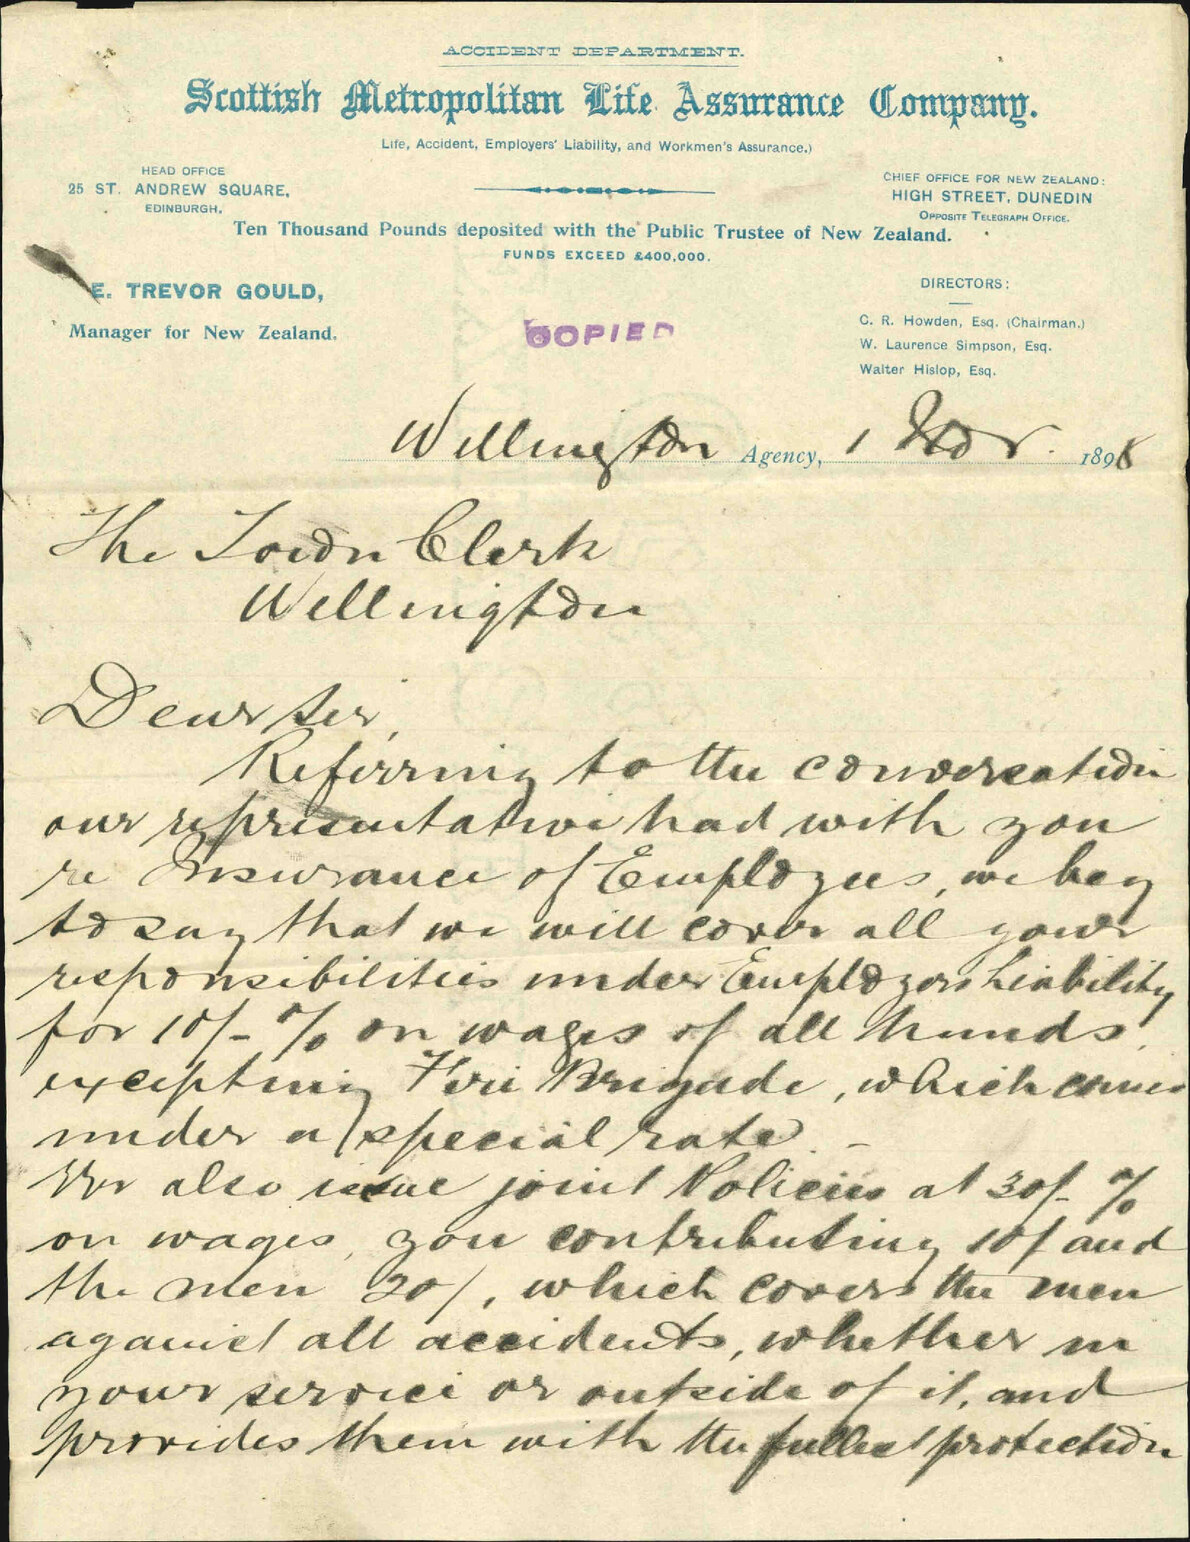 ACCIDENT DEPARTMENT.
Scottish Metropolitan Life Assurance Company.
Life, Accident, Employers' Liability, and Workmen's Assurance.)
HEAD OFFICE
25 ST. ANDREW SQUARE,
EDINBURGH.
CHIEF OFFICE FOR NEW ZEALAND:
HIGH STREET, DUNEDIN
OPPOSITE TELEGRAPH OFFICE.
Ten Thousand Pounds deposited with the Public Trustee of New Zealand.
FUNDS EXCEED £400,000.
E. TREVOR GOULD,
Manager for New Zealand.
COPIED
DIRECTORS:
C. R. Howden, Esq. (Chairman.)
W. Laurence Simpson, Esq.
Walter Hislop, Esq.
Wellington Agency, 1 Nov. 1898
The Town Clerk
Wellington
Dear Sir,
Referring to the conversation
our representative had with you
re Insurance of Employees, we beg
to say that we will cover all your
responsibilities under Employers Liability
for 10/- % on wages of all hands,
excepting Fire Brigade, which comes
under a special rate. -
We also issue joint Policies at 30/- %
on wages, you contributing 10/ and
the men 20/, which covers the men
against all accidents, whether in
your service or outside of it, and
provides them with the fullest protection